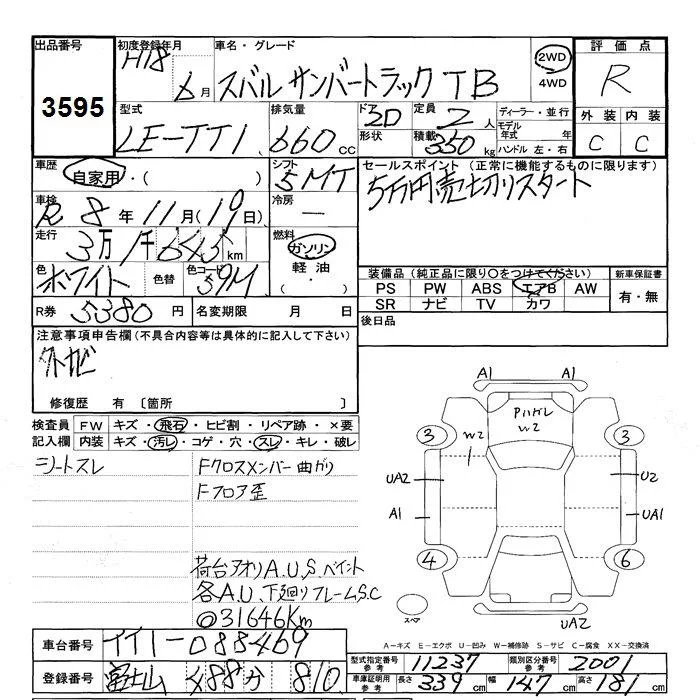 出品番号
3595
初度登録年月
H18 6月
車名・グレード
スバル サンバートラック TB
2WD
4WD
評価点
R
型式
LE-TT1
排気量
660cc
ドア 2D
形状
定員 2人
積載 350kg
ディーラー・並行
モデル年式 年
ハンドル 左・右
外装 内装
C C
車歴
自家用・( )
シフト
5MT
セールスポイント (正常に機能するものに限ります)
5万円売切りスタート
車検
R8年11月(19日)
冷房
—
走行
3万1千645km
燃料
ガソリン
軽油・
( ・ )
色
ホワイト
色替
色コード
39M
装備品 (純正品に限り○をつけてください)
PS PW ABS エアB AW
SR ナビ TV カワ
新車保証書
有・無
R券 5380円
名変期限 月 日
後日品
注意事項申告欄(不具合内容等は具体的に記入して下さい)
外サビ
修復歴 有 〔箇所 〕
検査員 FW キズ・飛石・ヒビ割・リペア跡・×要
記入欄 内装 キズ・汚レ・コゲ・穴・スレ・キレ・破レ
シートスレ
Fクロスメンバー曲がり
Fフロア歪
荷台アオリA.U.S.ペイント
各A.U.下廻りフレームS.C
◎31646Km
A1 A1
Pハガレ
W2
W2
3 3
UA2 U2
A1 UA1
4 6
スペア
UA2
A-キズ E-エクボ U-凹み W-補修跡 S-サビ C-腐食 XX-交換済
車台番号 TT1-088469
登録番号 富士山 488 810
型式指定番号 参考 11237
類別区分番号 参考 2001
車庫証明用 参考 長さ 339cm 幅 147cm 高さ 181cm